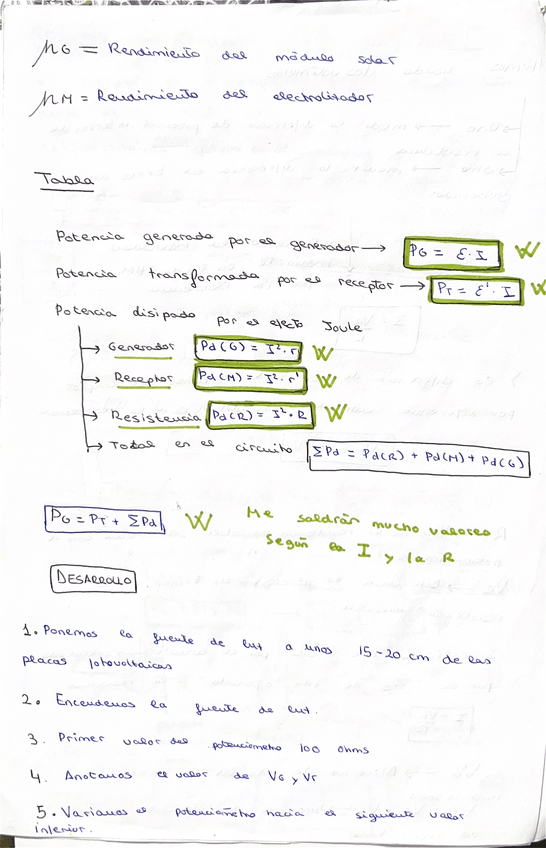 μG = Rendimiento del módulo solar
μM = Rendimiento del electrolizador
Tabla
Potencia generada por el generador → PG = ε · I W
Potencia transformada por el receptor → PT = ε' · I W
Potencia disipada por el efecto Joule
→ Generador Pd(G) = I² · r W
→ Receptor Pd(M) = I² · r' W
→ Resistencia Pd(R) = I² · R W
→ Total en el circuito ΣPd = Pd(R) + Pd(M) + Pd(G)
PG = PT + ΣPd W Me saldrán mucho valores
según la I y la R
DESARROLLO
1. Ponemos la fuente de luz a unos 15-20 cm de las
placas fotovoltaicas
2. Encendemos la fuente de luz.
3. Primer valor del potenciometro 100 ohms
4. Anotamos el valor de VG y Vr
5. Variamos el potenciómetro hacia el siguiente valor
inferior.